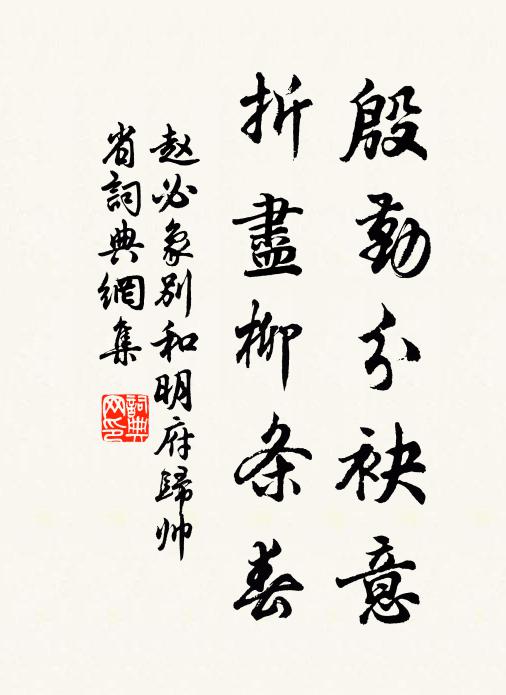 殷勤分袂意
折盡柳条春
赵必象別和明府歸帅
省詞典網集
詞典网印